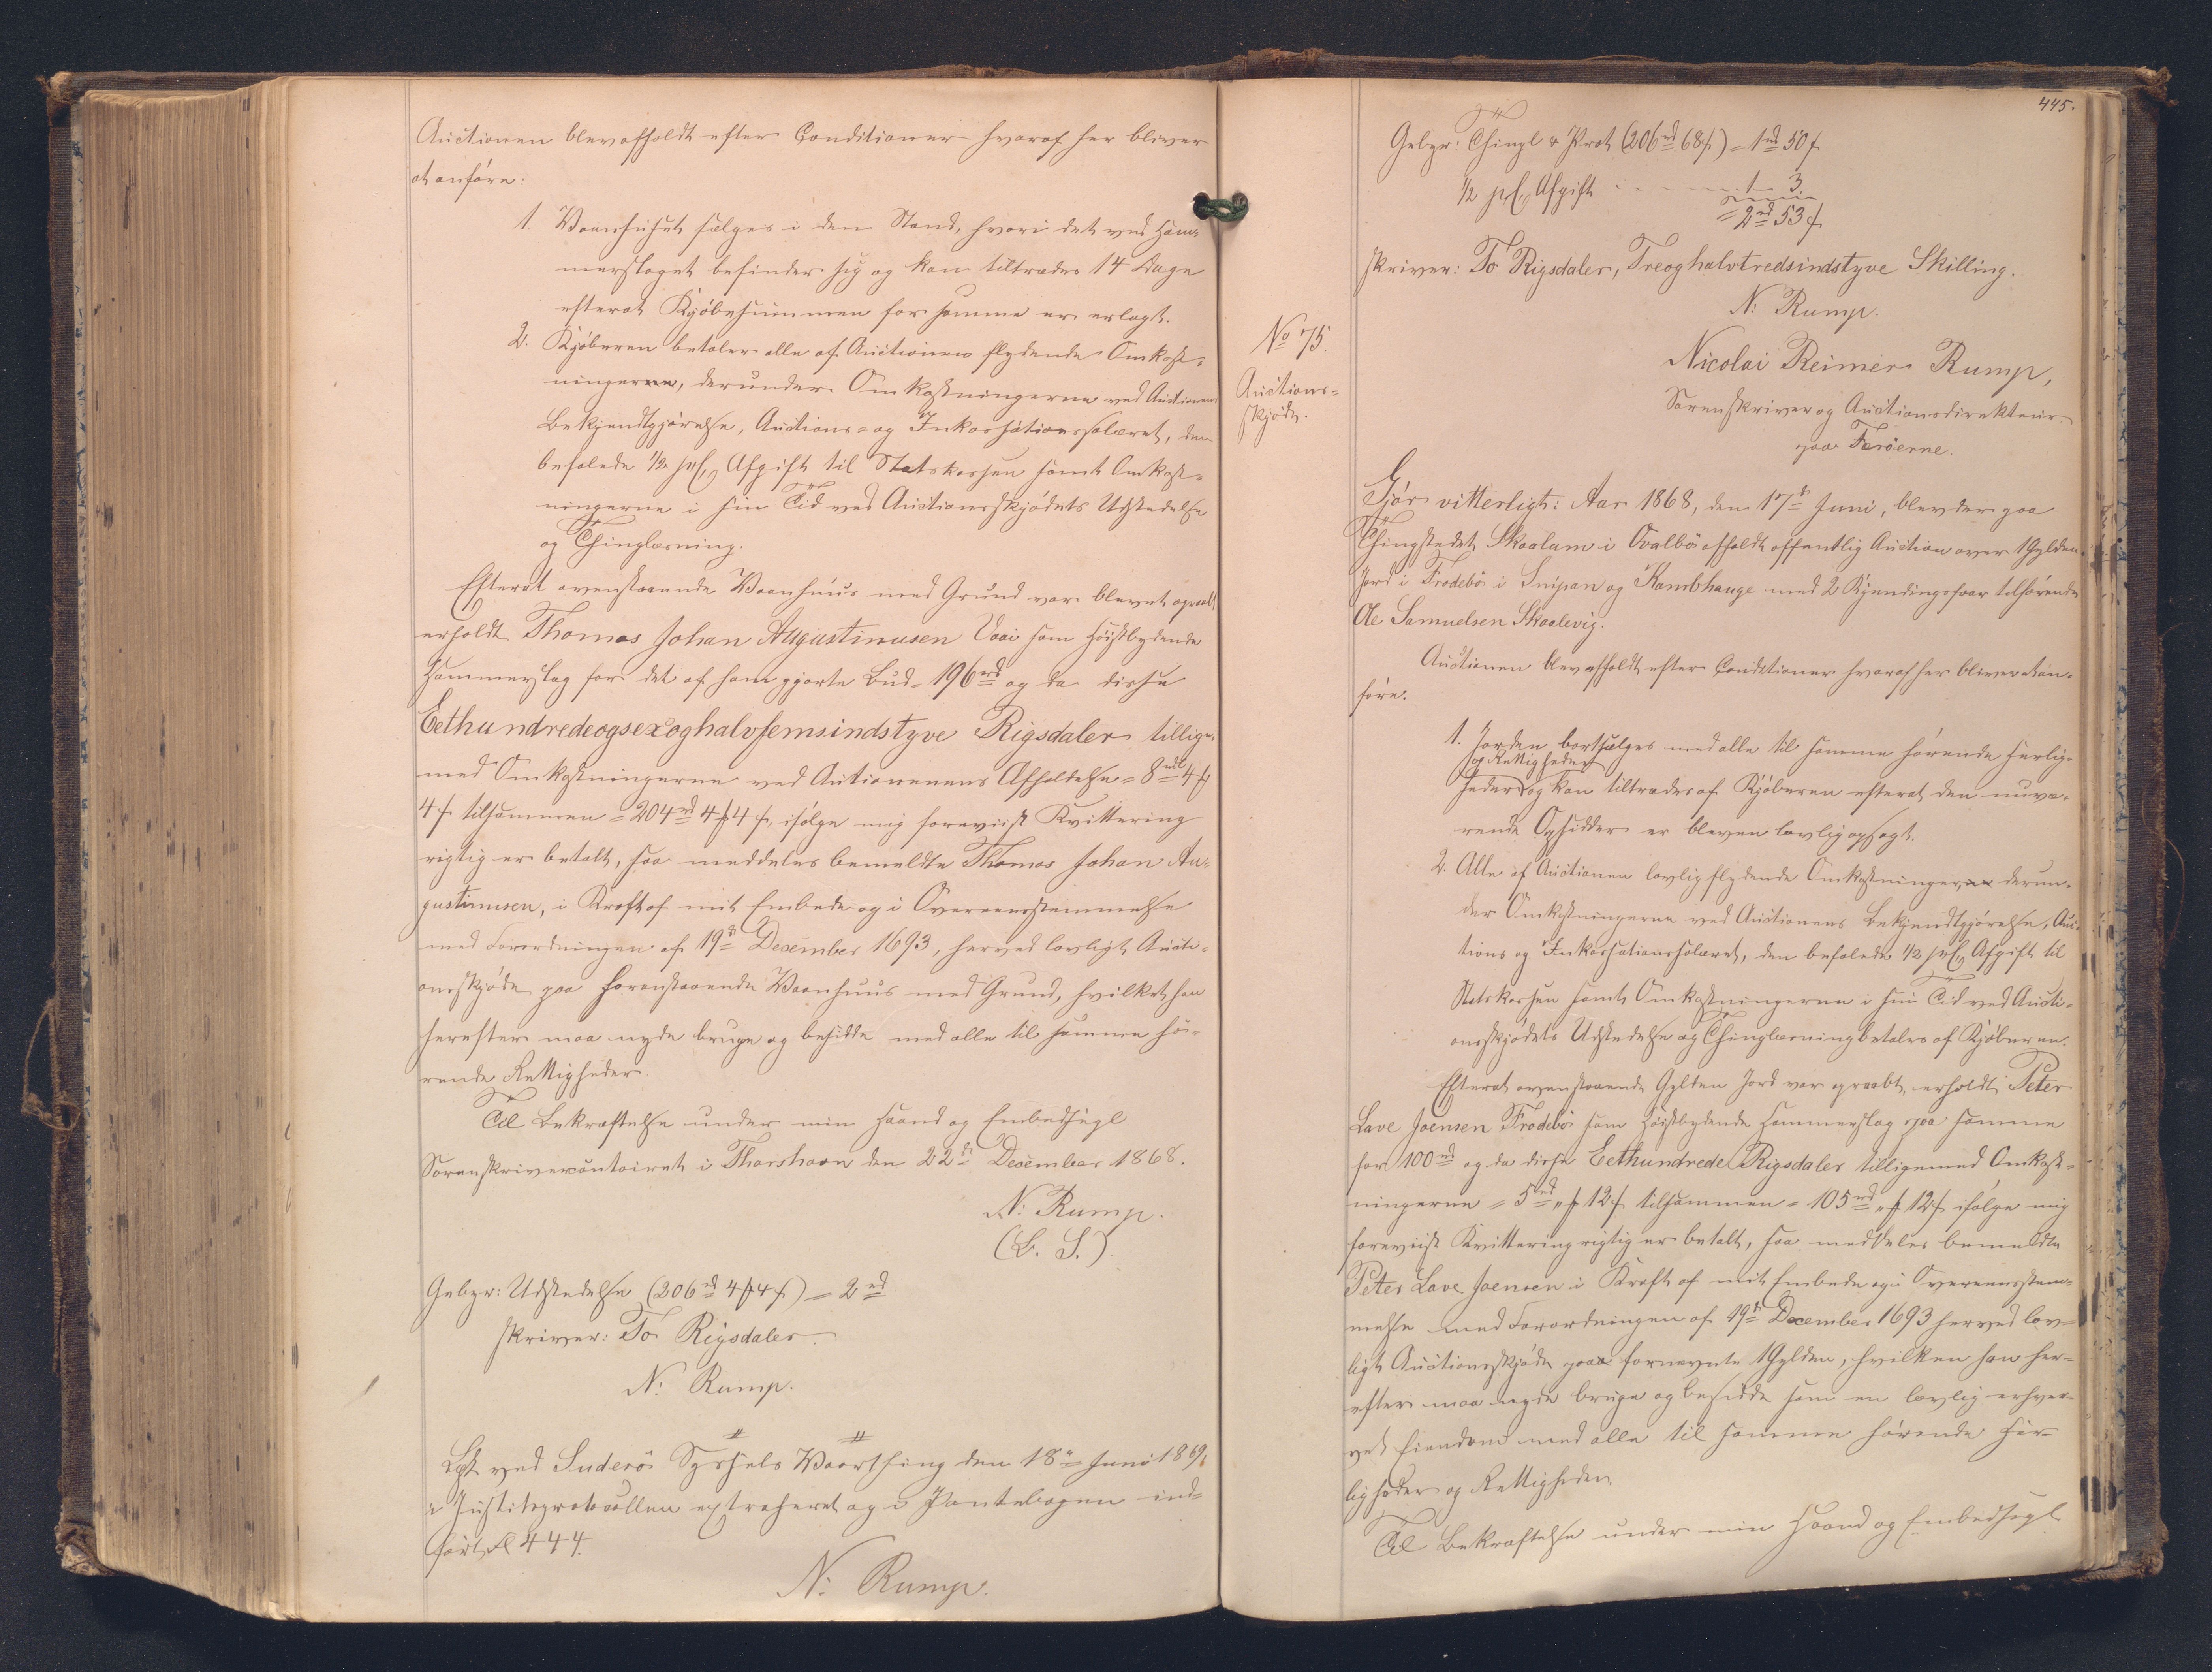 Auctionen blev afholdt efter Conditioner hvoraf her bliver
at anføre:
1. Vaanhuset sælges i den Stand, hvori det ved Ham-
merslaget befinder sig og kan tiltrædes 14 Dage
efterat Kjøbesummen for samme er erlagt.
2. Kjøberen betaler alle af Auctionen flydende Omkost-
ninger, derunder Omkostningerne ved Auctionens
Bekjendtgjørelse, Auctions- og Inkassationssalæret, den
befalede 1/2 pCt Afgift til Statskassen samt Omkost-
ningerne i sin Tid ved Auctionsskjødets Udstedelse
og Thinglæsning.
Efterat ovenstaaende Vaanhuus med Grund var blevet opraabt
erholdt Thomas Johan Augustinusen Vaai som Høistbydende
Hammerslag for det af ham gjorte Bud 196 rd og da disse
Eethundredeogsexoghalvfemsindstyve Rigsdaler tillige-
med Omkostningerne ved Auctionens Afholdelse = 8 rd 4 ʄ
4 s tilsammen = 204 rd 4 ʄ 4 s, ifølge mig foreviist Kvittering
rigtig er betalt, saa meddeles bemeldte Thomas Johan Au-
gustinusen, i Kraft af mit Embede og i Overeensstemmelse
med Forordningen af 19de December 1693, herved lovligt Aucti-
onsskjøde paa foranstaaende Vaanhuus med Grund, hvilket han
herefter maa nyde bruge og besidde med alle til samme hø-
rende Rettigheder.
Til Bekræftelse under min Haand og Embedssegl
Sorenskrivercontoiret i Thorshavn den 22de December 1868.
N: Rump.
(L. S.)
Gebyr: Udstedelse (206 rd 4 ʄ 4 s) = 2 rd
skriver: To Rigsdaler.
N: Rump.
Læst ved Suderö Syssels Vaarthing den 18de Juni 1869,
i Justitsprotocollen extraheret og i Pantebogen ind-
ført Fol 444.
N: Rump.
445.
Gebyr: Thingl & Prot (206 rd 68 s) = 1 rd 50 s
1/2 pCt Afgift 1 3.
= 2 rd 53 s
skriver: To Rigsdaler, Treoghalvtredsindstyve Skilling.
N: Rump.
No 75.
Auctions-
skjøde.
Nicolai Reimer Rump,
Sorenskriver og Auctionsdirekteur
paa Færöerne.
Gjør vitterligt: Aar 1868, den 17de Juni, blev der paa
Thingstedet Skaalum i Qvalbö afholdt offentlig Auction over 1 Gylden
Jord i Frodebö i Snipan og Kambhauge med 2 Kjendingsfaar tilhørende
Ole Samuelsen Skaalevig.
Auctionen blev afholdt efter Conditioner hvoraf her bliver at an-
føre.
1. Jorden bortsælges med alle til samme hørende Herlig-
og Rettigheder
heder og kan tiltrædes af Kjøberen efterat den nuvæ-
rende Opsidder er bleven lovlig opsagt.
2. Alle af Auctionen lovlig flydende Omkostninger derun-
der Omkostningerne ved Auctionens Bekjendtgjørelse, Auc-
tions og Inkassationssalæret, den befalede 1/2 pCt Afgift til
Statskassen samt Omkostningerne i sin Tid ved Aucti-
onsskjødets Udstedelse og Thinglæsning betales af Kjøberen.
Efterat ovenstaaende Gylden Jord var opraabt, erholdt Peter
Lave Joensen Frodebö som Høistbydende Hammerslag paa samme
for 100 rd og da disse Eethundrede Rigsdaler tilligemed Omkost-
ningerne = 5 rd " ʄ 12 s tilsammen = 105 rd " ʄ 12 s ifølge mig
foreviist Kvittering rigtig er betalt, saa meddeles bemeldte
Peter Lave Joensen i Kraft af mit Embede og i Overeensstem-
melse med Forordningen af 19de December 1693 herved lov-
ligt Auctionsskjøde paa fornævnte 1 Gylden, hvilken han her-
efter maa nyde bruge og besidde som en lovlig erhver-
vet Eiendom med alle til samme hørende Her-
ligheder og Rettigheder.
Til Bekræftelse under min Haand og Embedssegl